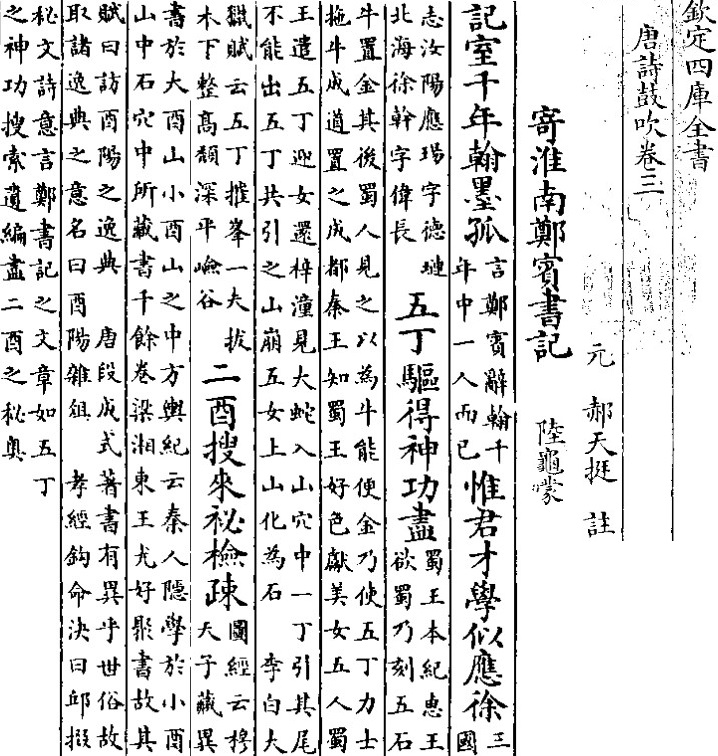 欽定四庫全書
唐詩鼓吹卷三
元 郝天挺 註
寄淮南鄭賓書記 陸龜蒙
記室千年翰墨孤
言鄭賓辭翰千
年中一人而已
惟君才學似應徐
三
國
志汝陽應瑒字德璉
北海徐幹字偉長
五丁驅得神功盡
蜀王本紀惠王
欲蜀乃刻五石
牛置金其後蜀人見之以為牛能便金乃使五丁力士
拖牛成道置之成都秦王知蜀王好色獻美女五人蜀
王遣五丁迎女還梓潼見大蛇入山穴中一丁引其尾
不能出五丁共引之山崩五女上山化為石 李白大
獵賦云五丁摧峯一夫拔
木下整高頽深平嶮谷
二酉搜來祕檢疎
圖經云穆
天子藏異
書於大酉山小酉山之中方輿紀云秦人隱學於小酉
山中石穴中所藏書千餘卷梁湘東王尤好聚書故其
賦曰訪酉陽之逸典 唐段成式著書有異乎世俗故
取諸逸典之意名曰酉陽雜俎 孝經鈎命決曰邱掇
秘文詩意言鄭書記之文章如五丁
之神功搜索遺編盡二酉之秘奥